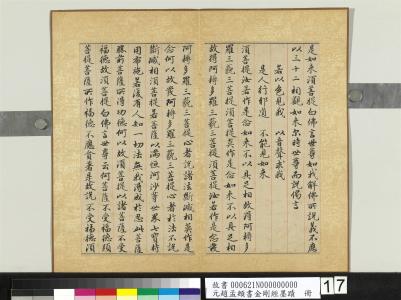 是如來須菩提白佛言世尊如我解佛所說義不應
以三十二相觀如來尔時世尊而說偈言
若以色見我 以音聲求我
是人行邪道 不能見如來
須菩提汝若作是念如來不以具足相故得阿耨多
羅三藐三菩提須菩提莫作是念如來不以具足相
故得阿耨多羅三藐三菩提須菩提汝若作是念發
阿耨多羅三藐三菩提心者說諸法斷滅相莫作是
念何以故發阿耨多羅三藐三菩提心者於法不說
斷滅相須菩提若菩薩以滿恒河沙等世界七寶持
用布施若復有人知一切法無我得成於忍此菩薩
勝前菩薩所得功德何以故須菩提以諸菩薩不受
福德故須菩提白佛言世尊云何菩薩不受福德須
菩提菩薩所作福德不應貪著是故說不受福德須
故書 000621N000000000
元趙孟頫書金剛經墨蹟 冊
17